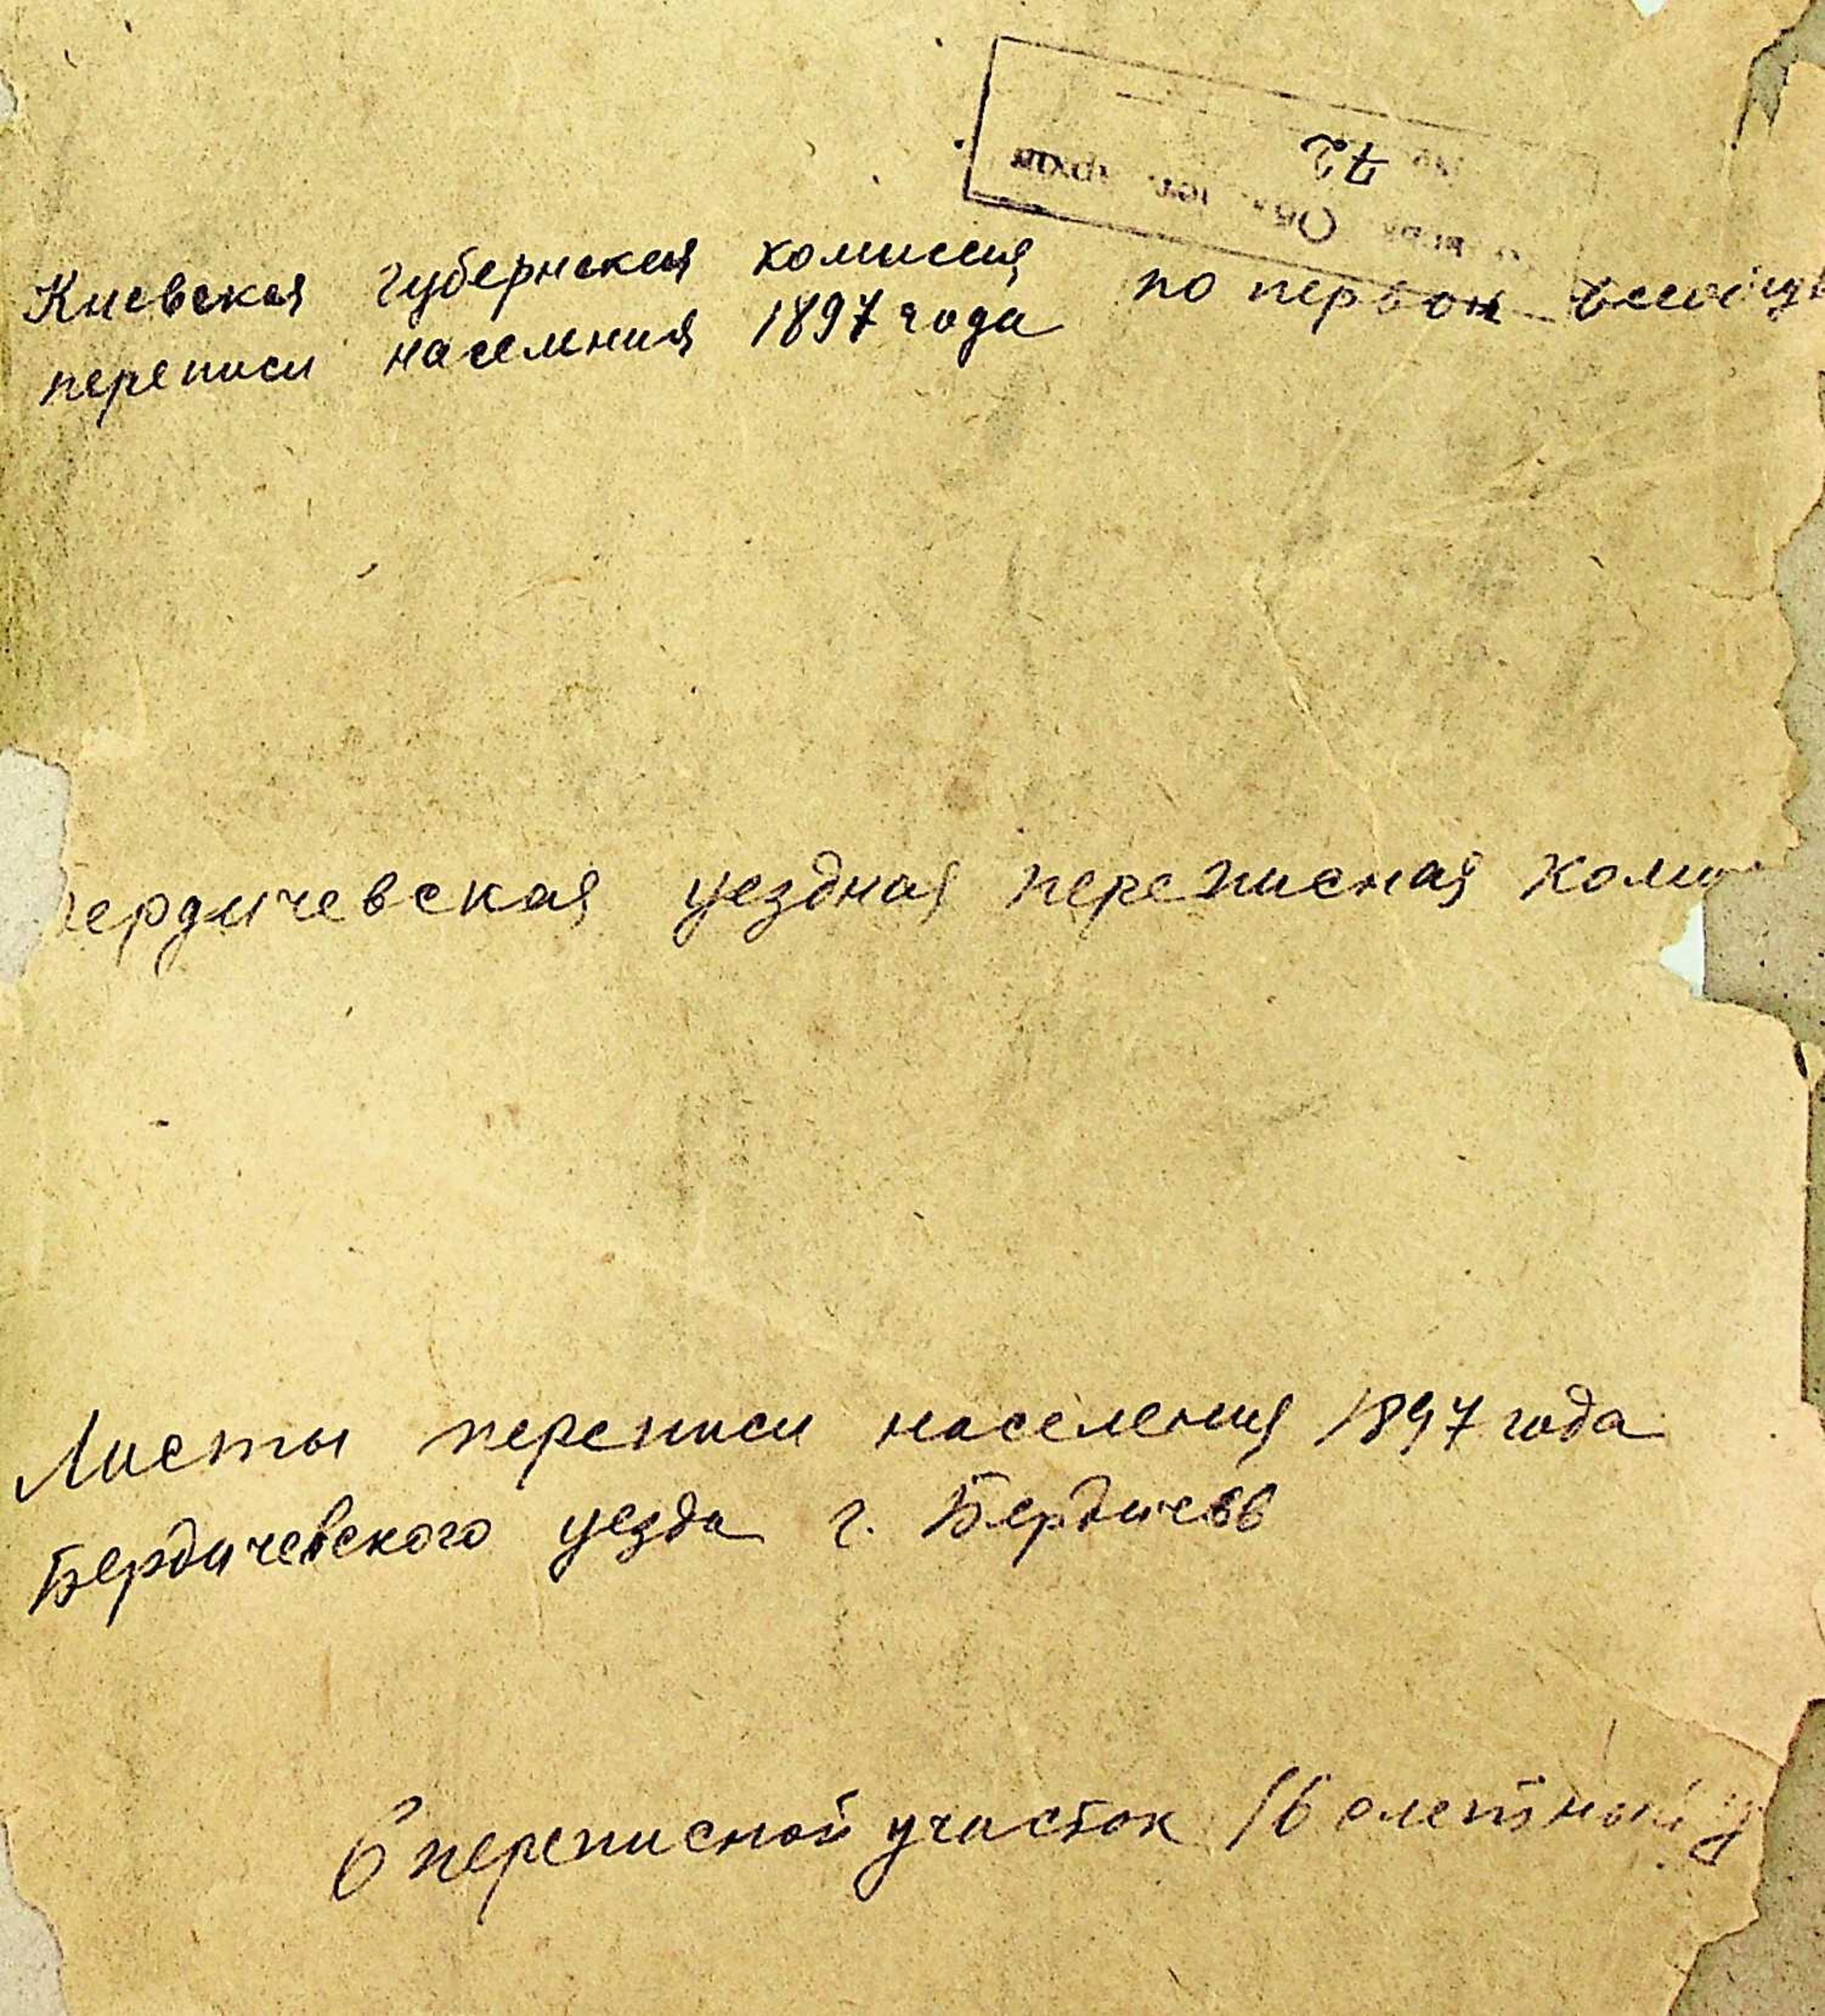 72
Киевская губернская комиссия по первой
переписи населения 1897 года
ердичевская уездная переписная коми
Листы переписи населения 1897 года
Бердичевского уезда г. Бердичев
6 переписной участок 16 счетный